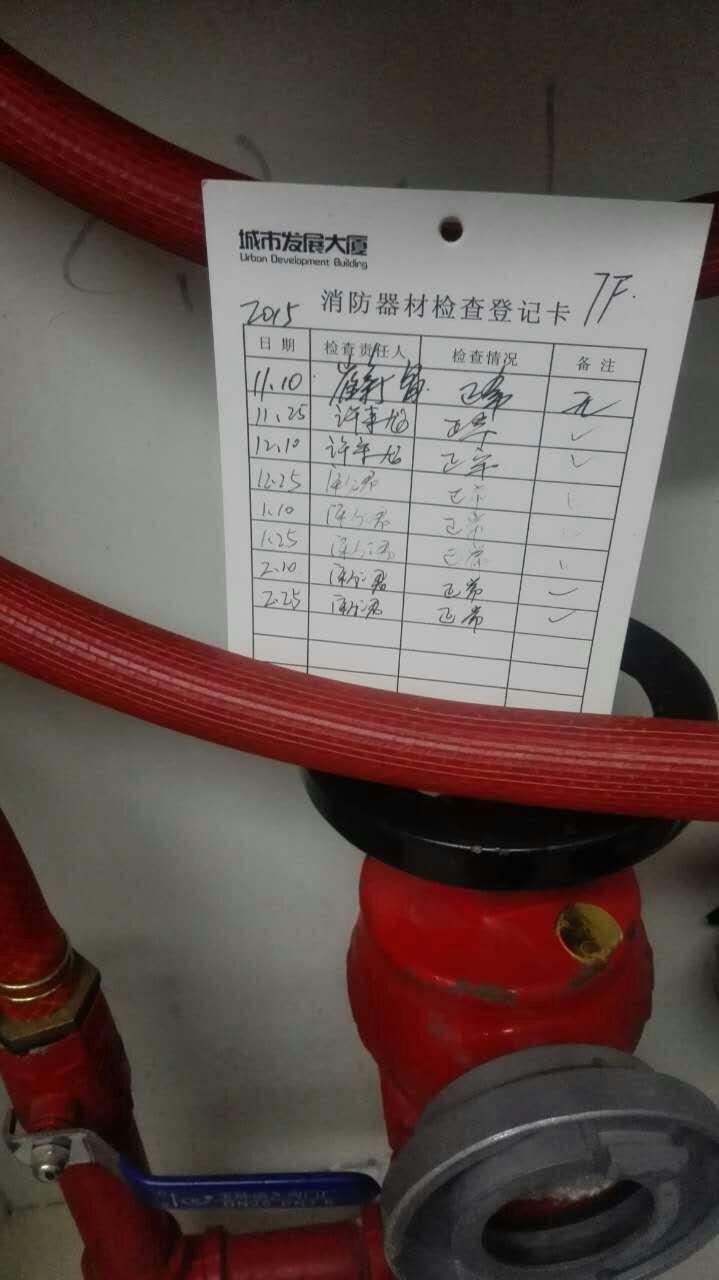 城市发展大厦
Urban Development Building
2015 消防器材检查登记卡 7F.
日期 检查责任人 检查情况 备注
11.10 正常 无
11.25 正常 ✓
12.10 正常 ✓
12.25 正常
1.10 正常
1.25 正常
2.10 正常 ✓
2.25 正常 ✓